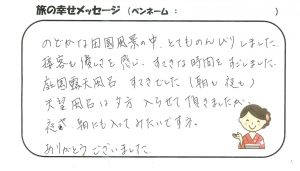 旅の幸せメッセージ（ペンネーム：　　　　）
のどかな田園風景の中、とてものんびりしました
接客も優しさを感じ、すてきな時間をすごしました。
庭園露天風呂 すてきでした（朝も夜も）
大望風呂は夕方 入らせて頂きましたが、
夜 朝にも入ってみたいです。
ありがとうございました